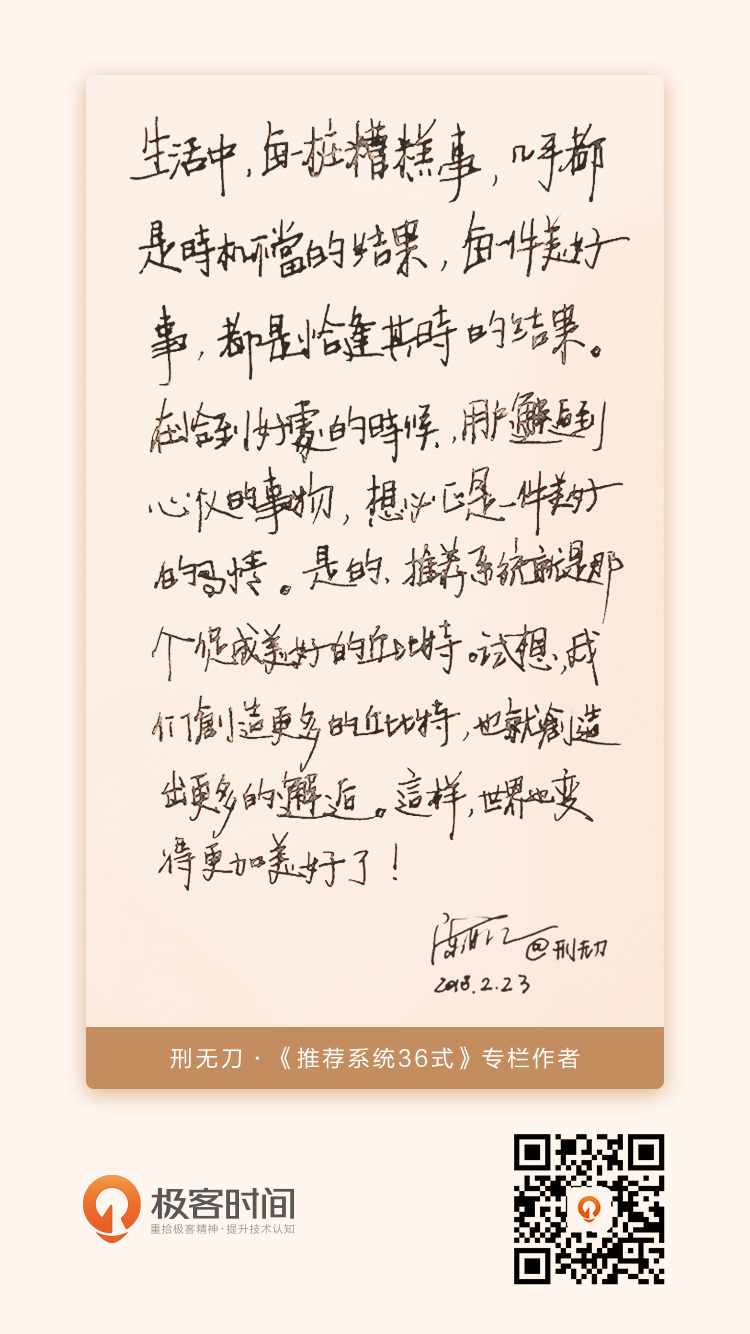 生活中,每一桩糟糕事,几乎都
是時机不當的结果,每一件美好
事,都是恰逢其時的结果。
在恰到好處的時候,用户邂逅到
心仪的事物,想必正是一件美好
的事情。是的、推荐系统就是那
个促成美好的丘比特。试想,我
们創造更多的丘比特,也就創造
出更多的邂逅。這样,世界也变
得更加美好了!
@刑无刀
2018.2.23
刑无刀·《推荐系统36式》专栏作者
极客时间
重拾极客精神·提升技术认知